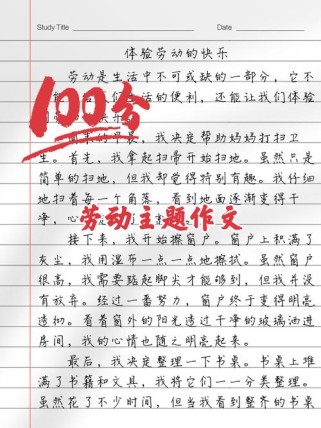 Study Title
Date
体验劳动的快乐
劳动是生活中不可或缺的一部分，它不
生活的便利，还能让我们体验
100分
的早晨，我决定帮助妈妈打扫卫
生。首先，我拿起扫帚开始扫地。虽然只是
简单的扫地，但我却觉得特别有趣。我仔细
地扫着每一个角落，看到地面逐渐变得干
净，心
劳动主题作文
接下来，我开始擦窗户。窗户上积满了
灰尘，我用湿布一点一点地擦拭。虽然窗户
很高，我需要踮起脚尖才能够到，但我并没
有放弃。经过一番努力，窗户终于变得明亮
透彻。看着窗外的阳光透过干净的玻璃洒进
房间，我的心情也随之明亮起来。
最后，我决定整理一下书桌。书桌上堆
满了书籍和文具，我将它们一一分类整理。
虽然花了不少时间，但当我看到整齐的书桌